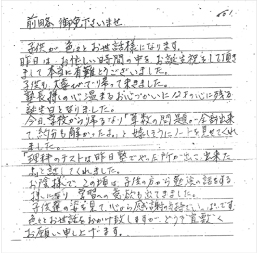 前略 御免下さいませ
子供が色々とお世話様になります。
昨日は、お忙しい時間の中をお誕生祝をして頂き
まして本当に有難とうございました。
子供も大喜びで帰って来ました。
塾長様の心温まるお心づかいに 心に残る
誕生日となりました。
今日、学校から帰るなり「算数の問題が全部出来
て、約分も解かったよ」と嬉しそうにノートを見せてくれ
ました。
「理科のテストは昨日塾でやった所が出て出来た
よ」と話してくれました。
お陰様で、この頃は、子供の方から勉強の話をする
様になり、学習への意欲も出てきました。
子供達の姿を見て、心から感謝の気持でいっぱいです。
色々とお世話をおかけ致しますが、どうぞ宜敷く
お願い申し上げます。